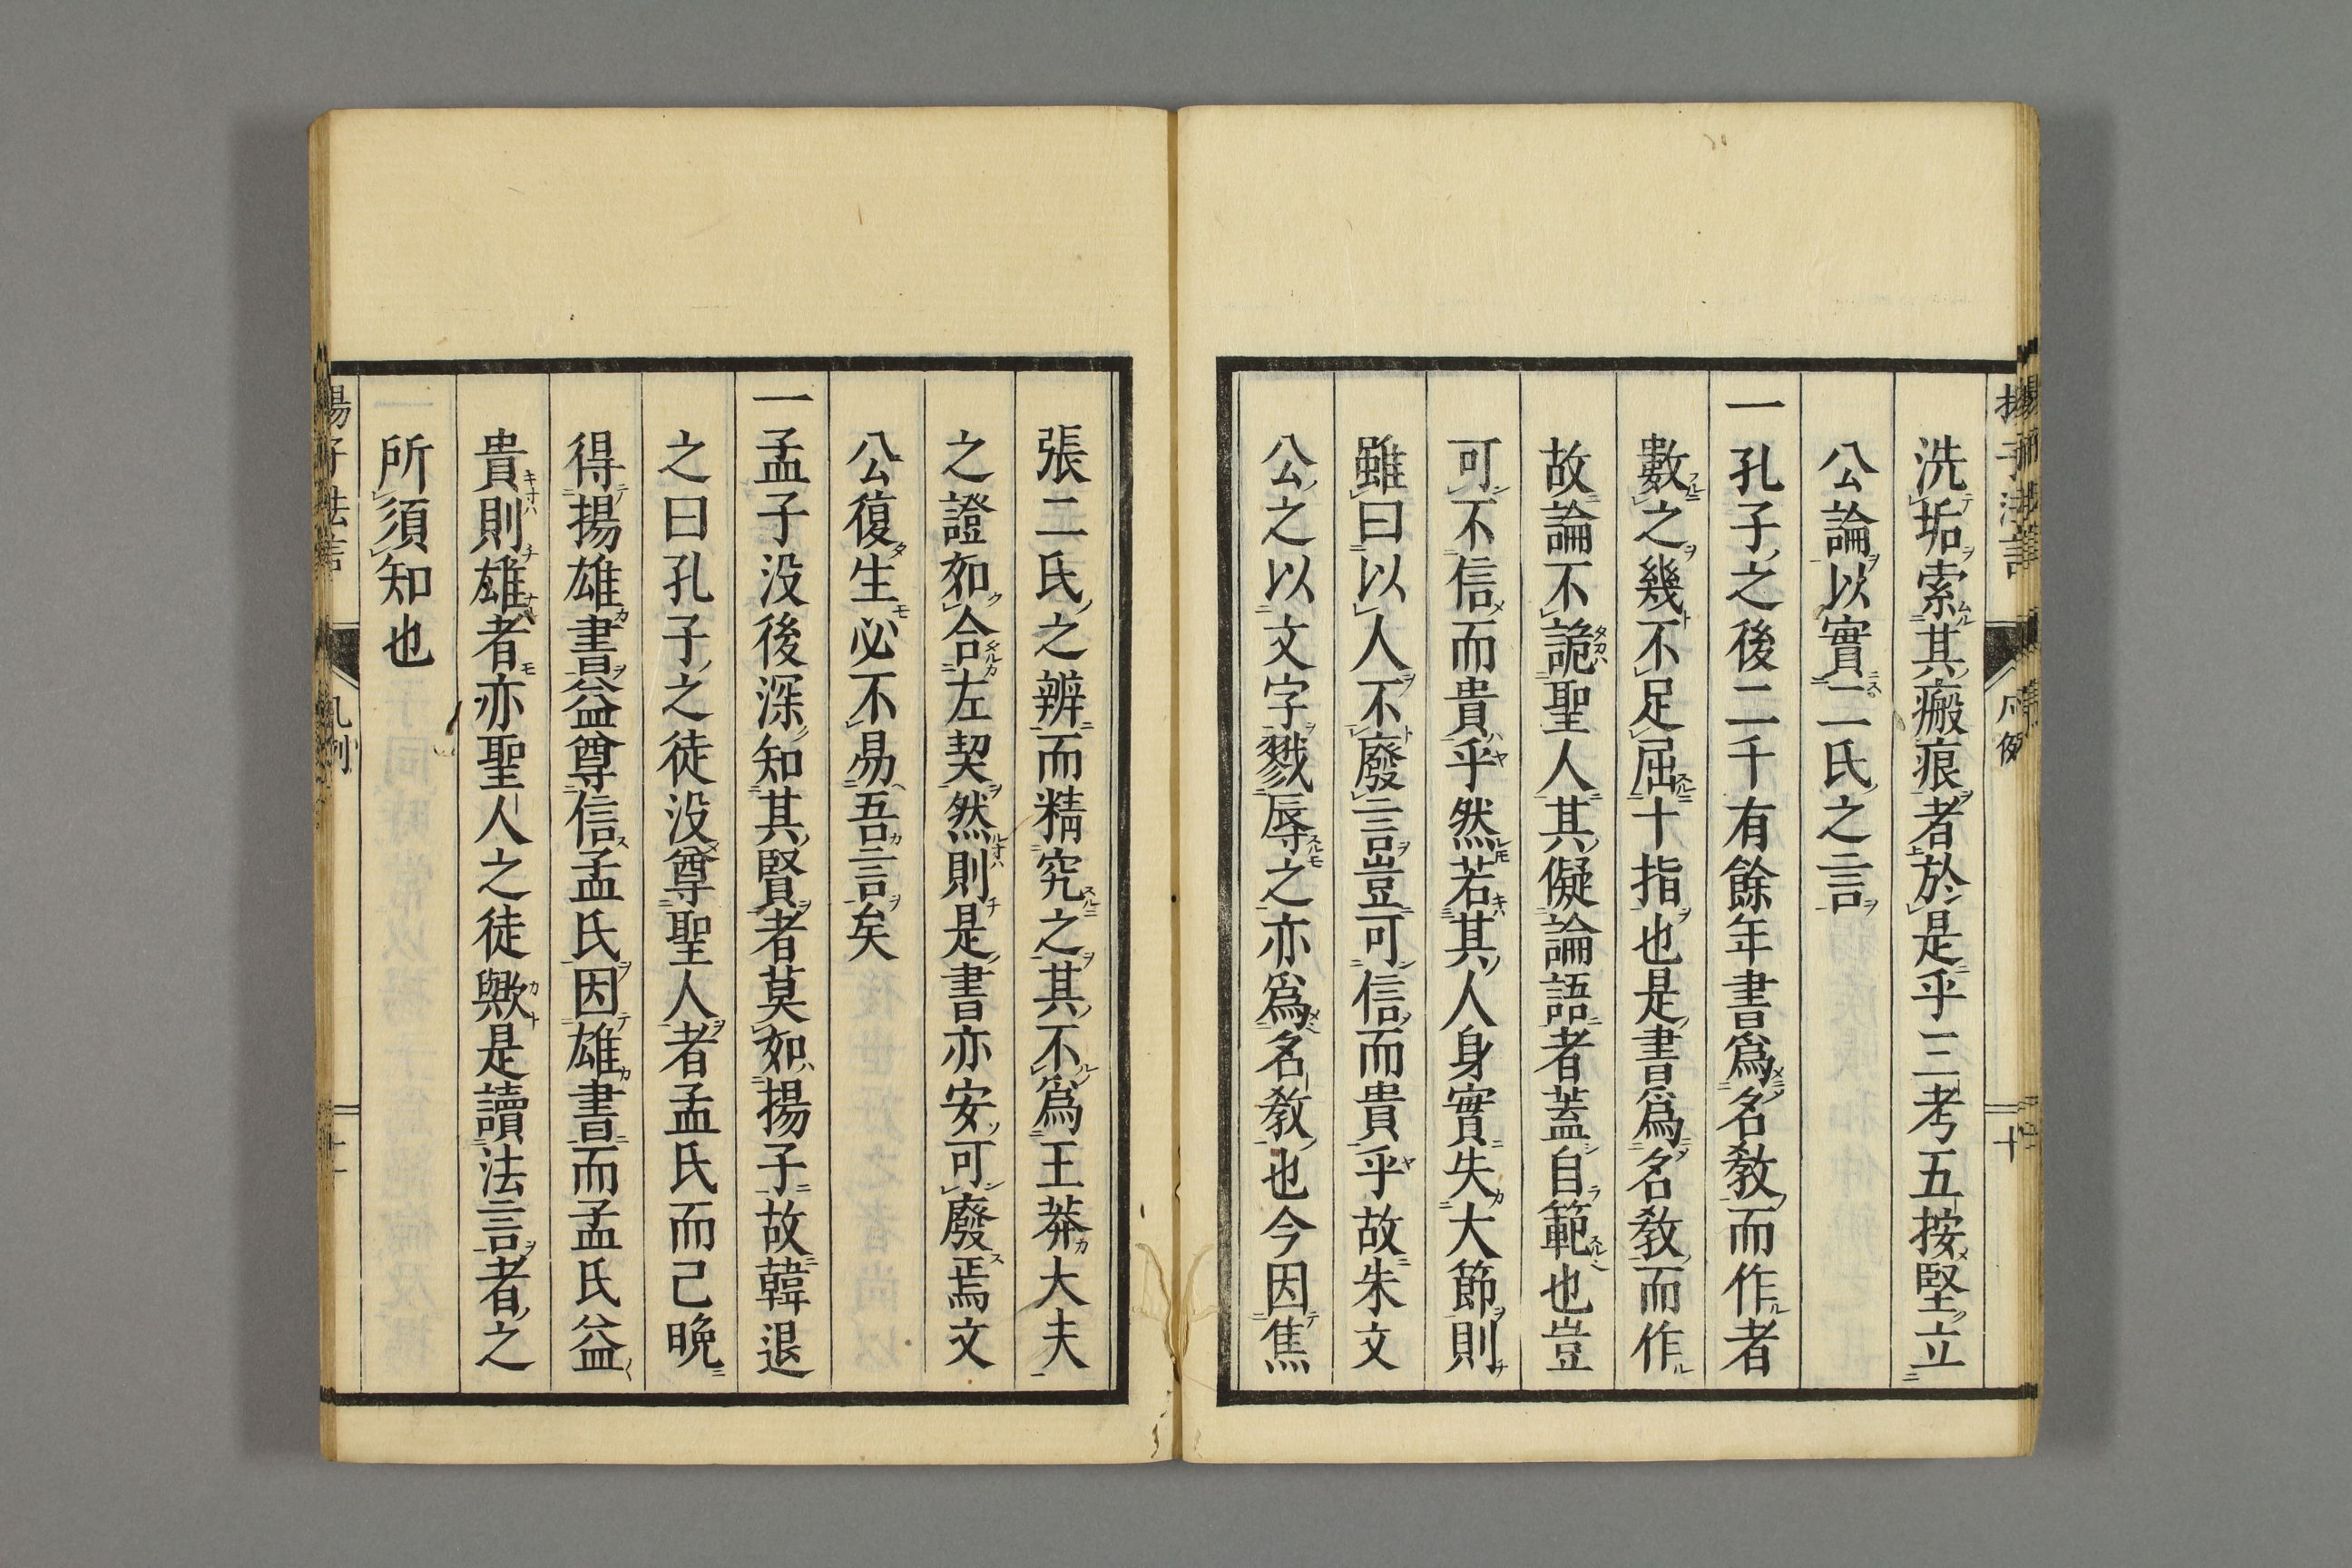 洗垢索其瘢痕者於是乎三考五按堅立
公論以實二氏之言
一孔子之後二千有餘年書爲名教而作者
數之幾不足屈十指也是書爲名教而作
故論不詭聖人其儗論語者蓋自範也豈
可不信而貴乎然若其人身實失大節則
雖曰以人不廢言豈可信而貴乎故朱文
公之以文字戮辱之亦爲名教也今因焦
張二氏之辨而精究之其不爲王莽大夫
之證如合左契然則是書亦安可廢焉文
公復生必不易吾言矣
一孟子没後深知其賢者莫如揚子故韓退
之曰孔子之徒没尊聖人者孟氏而己晩
得揚雄書益尊信孟氏因雄書而孟氏益
貴則雄者亦聖人之徒歟是讀法言者之
所須知也